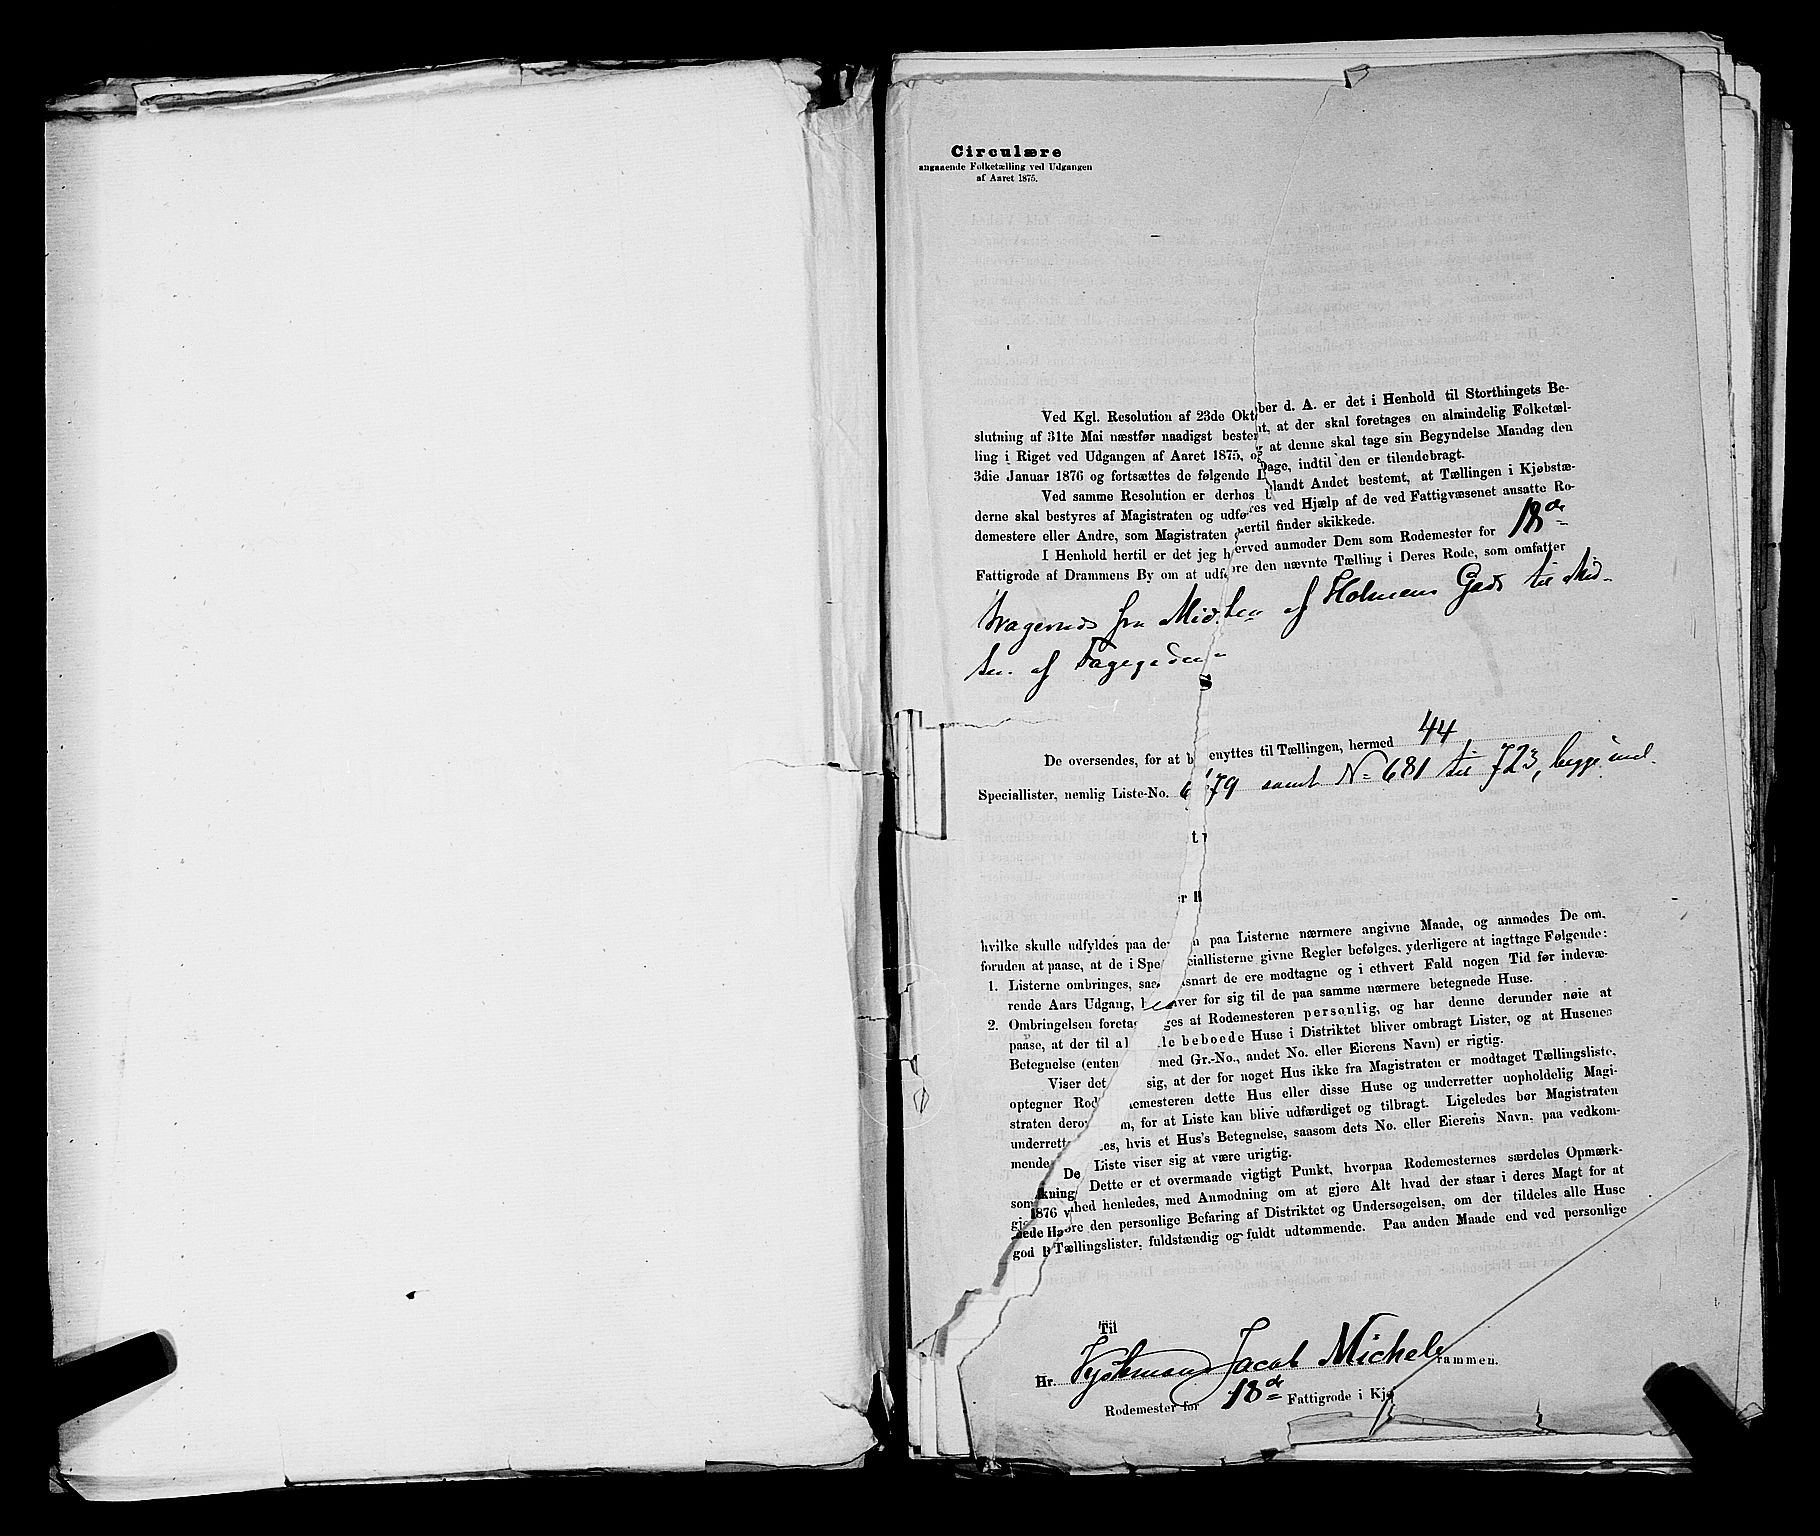 Circulære
angaaende Folketælling ved Udgangen
af Aaret 1875.
Ved Kgl. Resolution af 23de Oktober d. A. er det i Henhold til Storthingets Be-
slutning af 31te Mai næstfør naadigst bestemt, at der skal foretages en almindelig Folketæl-
ling i Riget ved Udgangen af Aaret 1875, og at denne skal tage sin Begyndelse Mandag den
3die Januar 1876 og fortsættes de følgende Dage, indtil den er tilendebragt.
Ved samme Resolution er derhos blandt Andet bestemt, at Tællingen i Kjøbstæ-
derne skal bestyres af Magistraten og udføres ved Hjælp af de ved Fattigvæsenet ansatte Ro-
demestere eller Andre, som Magistraten hertil finder skikkede.
I Henhold hertil er det jeg herved anmoder Dem som Rodemester for 18de
Fattigrode af Drammens By om at udføre den nævnte Tælling i Deres Rode, som omfatter
Bragernes fra Midten af Holmens Gade til Mid-
ten af Fagegaden
De oversendes, for at benyttes til Tællingen, hermed 44
Speciallister, nemlig Liste-No. 679 samt No 681 til 723, begge incl.
hvilke skulle udfyldes paa den paa Listerne nærmere angivne Maade, og anmodes De om,
foruden at paase, at de i Speciallisterne givne Regler befølges, yderligere at iagttage Følgende:
1. Listerne ombringes, saasnart de ere modtagne og i ethvert Fald nogen Tid før indevæ-
rende Aars Udgang, hver for sig til de paa samme nærmere betegnede Huse.
2. Ombringelsen foretages af Rodemesteren personlig, og har denne derunder nøie at
paase, at der til alle beboede Huse i Distriktet bliver ombragt Lister, og at Husenes
Betegnelse (enten med Gr.-No., andet No. eller Eierens Navn) er rigtig.
Viser det sig, at der for noget Hus ikke fra Magistraten er modtaget Tællingsliste,
optegner Rodemesteren dette Hus eller disse Huse og underretter uopholdelig Magi-
straten derom, for at Liste kan blive udfærdiget og tilbragt. Ligeledes bør Magistraten
underrettes, hvis et Hus's Betegnelse, saasom dets No. eller Eierens Navn, paa vedkom-
mende Liste viser sig at være urigtig.
Dette er et overmaade vigtigt Punkt, hvorpaa Rodemesternes særdeles Opmærk-
somhed henledes, med Anmodning om at gjøre Alt hvad der staar i deres Magt for at
gjøre den personlige Befaring af Distriktet og Undersøgelsen, om der tildeles alle Huse
Tællingslister, fuldstændig og fuldt udtømmende. Paa anden Maade end ved personlige
Til
Hr. Jacob Michel rammen.
Rodemester for 18de Fattigrode i Kjø